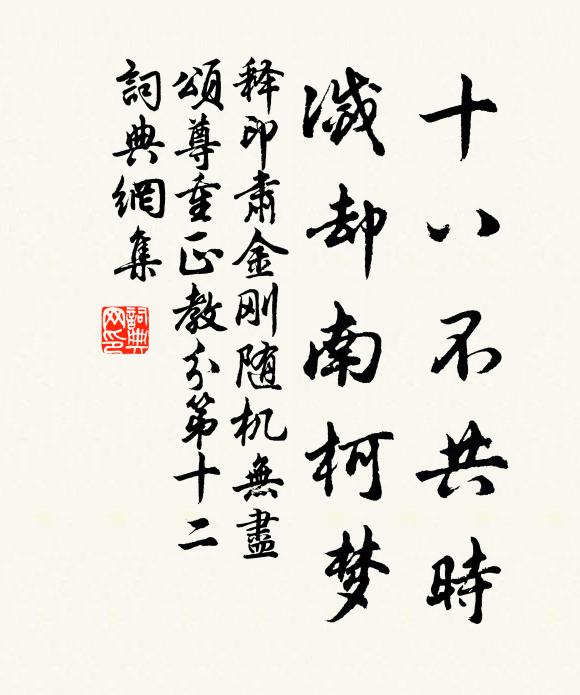 十八不共時
滅却南柯梦
释印肃金刚随机無盡
頌尊重正教分第十二
詞典網集
詞典
网印